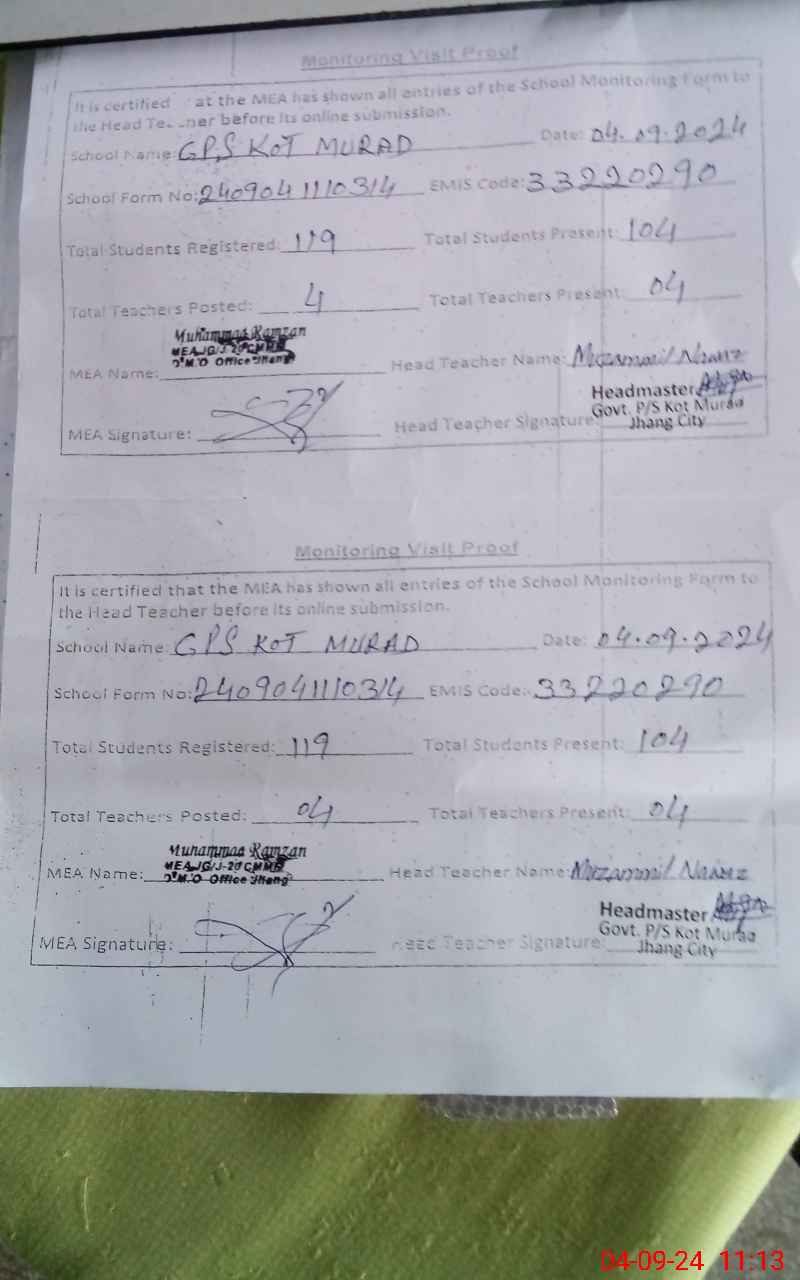 Monitoring Visit Proof
It is certified at the MEA has shown all entries of the School Monitoring Form to
the Head before its online submission.
School Name: GPS KOT MURAD Date: 04.09.2024
School Form No: 2409041110314 EMIS Code: 33220290
Total Students Registered: 119 Total Students Present: 104
Total Teachers Posted: 4 Total Teachers Present: 04
Muhammad Ramzan
MEA JG/J-20 CMMF
D.M.O Office Jhang
MEA Name: Head Teacher Name: Muzammil
Headmaster
Govt. P/S Kot Murad
MEA Signature: Head Teacher Signature: Jhang City
Monitoring Visit Proof
It is certified that the MEA has shown all entries of the School Monitoring Form to
the Head Teacher before its online submission.
School Name: GPS KOT MURAD Date: 04.09.2024
School Form No: 2409041110314 EMIS Code: 33220290
Total Students Registered: 119 Total Students Present: 104
Total Teachers Posted: 04 Total Teachers Present: 04
Muhammad Ramzan
MEA JG/J-20 CMMF
D.M.O Office Jhang
MEA Name: Head Teacher Name: Muzammil
Headmaster
Govt. P/S Kot Murad
MEA Signature: Head Teacher Signature: Jhang City
04-09-24 11:13